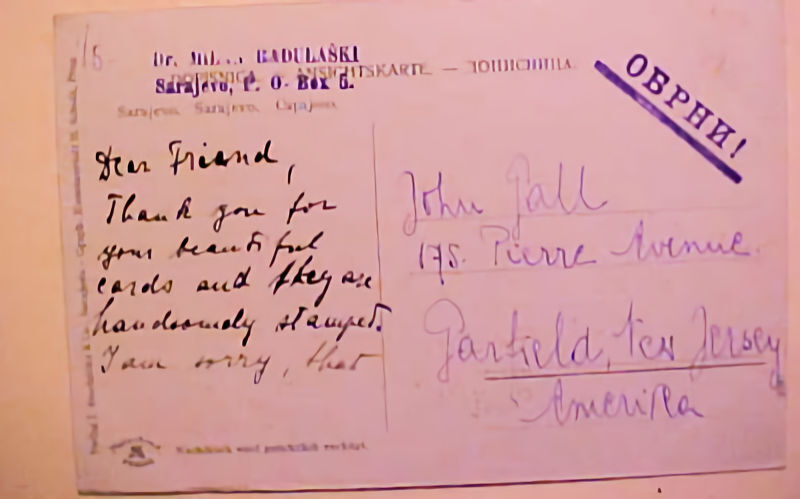 Dr. MILAN RADULAŠKI
Sarajevo, P. O. Box 5.
DOPISNICA — ANSICHTSKARTE — ДОПИСНИЦА
Sarajevo, Sarajevo, Сарајево
ОБРНИ!
Dear Friend,
Thank you for
your beautiful
cards and they are
handsomely stamped.
I am sorry, that
John Gall
175. Pierre Avenue.
Garfield, New Jersey
Amerika